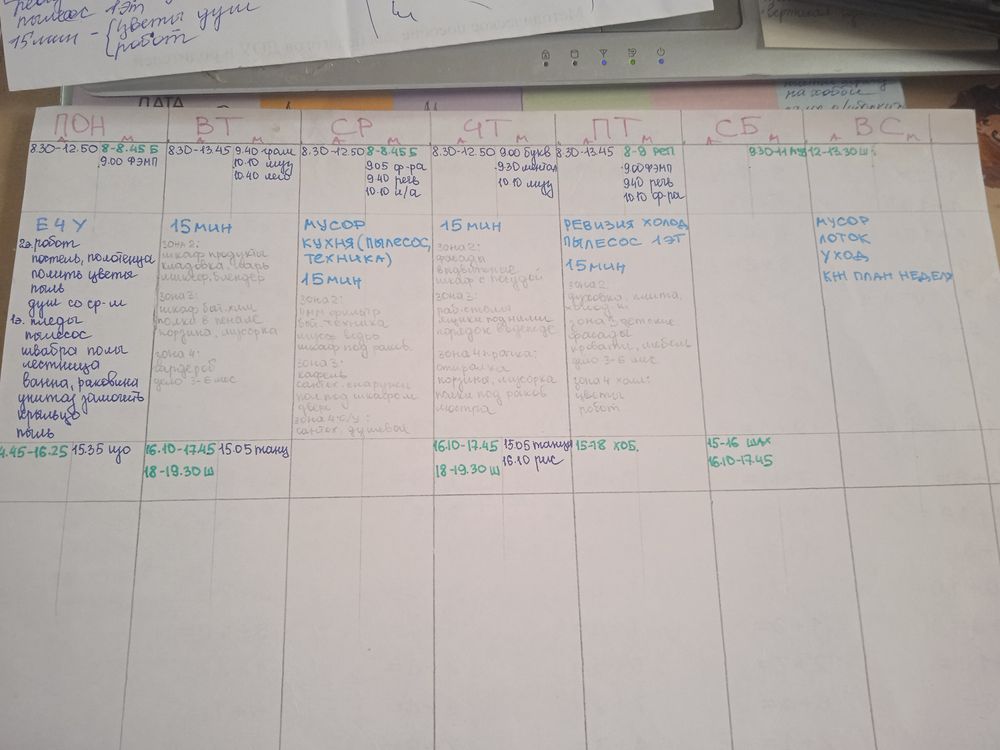 пылесос 1эт
15мин - {цветы душ
робот
на хобби
ДАТА
ПОН ВТ СР ЧТ ПТ СБ ВС
А м А м А м А м А м А м А м
8.30-12.50 8-8.45 Б
9.00 ФЭМП
8.30-13.45 9.40 грам
10.10 муз
10.40 лего
8.30-12.50 8-8.45 Б
9.05 ф-ра
9.40 речь
10.10 и/а
8.30-12.50 9.00 букв
9.30 ментал
10.10 муз
8.30-13.45 8-9 РЕП
9.00 ФЭМП
9.40 речь
10.10 ф-ра
9.30-11
12-13.30 Ш
Е4У
2э. робот
постель, полотенца
полить цветы
пыль
душ со ср-м
1э. пледы
пылесос
швабра полы
лестница
ванна, раковина
унитаз замочить
крыльцо
пыль
15 мин
зона 2:
шкаф продукты
кладовка, шарь
миксер, блендер
зона 2:
шкаф быт.хим
полки в пенале
корзина, мусорка
зона 4:
гардероб
дело 3-6 мес
МУСОР
КУХНЯ (ПЫЛЕСОС,
ТЕХНИКА)
15 МИН
зона 2:
фильтр
быт.техника
мусор ведро
шкаф под раков.
зона 3:
кафель
сантех. снаружи
пол под шкафом
двери
зона 4 с/у:
сантех. душевой
15 мин
зона 2:
фасады
выдвижные
шкаф с посудой
зона 3:
раб.столы
ящики под ними
порядок в одежде
зона 4 прачка:
стиралка
корзина, мусорка
полки под раков
люстра
РЕВИЗИЯ ХОЛОД
ПЫЛЕСОС 1ЭТ
15 мин
зона 2:
духовка, плита,
холод-к
зона 3 детские
фасады
кровати, мебель
дело 3-6 мес
зона 4 холл:
цветы
робот
МУСОР
ЛОТОК
УХОД
КЖ ПЛАН НЕДЕЛЯ
4.45-16.25 15.35 изо
16.10-17.45 15.05 танц
18-19.30 Ш
16.10-17.45 15.05 танц
18-19.30 Ш 16.10 рис
15-18 ХОБ.
15-16 ШАХ
16.10-17.45